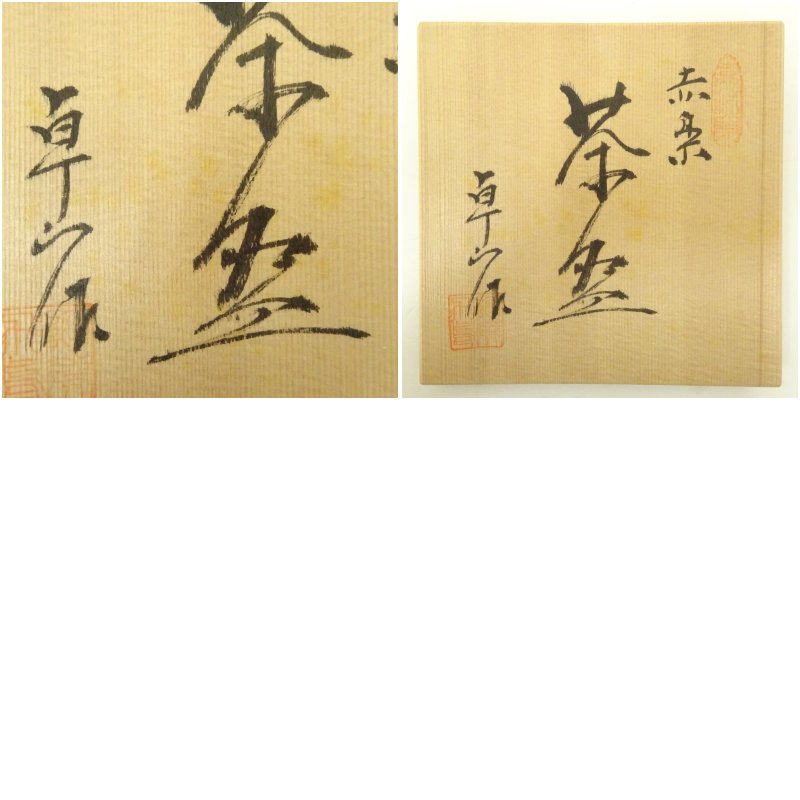 茶盌
卓山作
赤楽
茶盌
卓山作